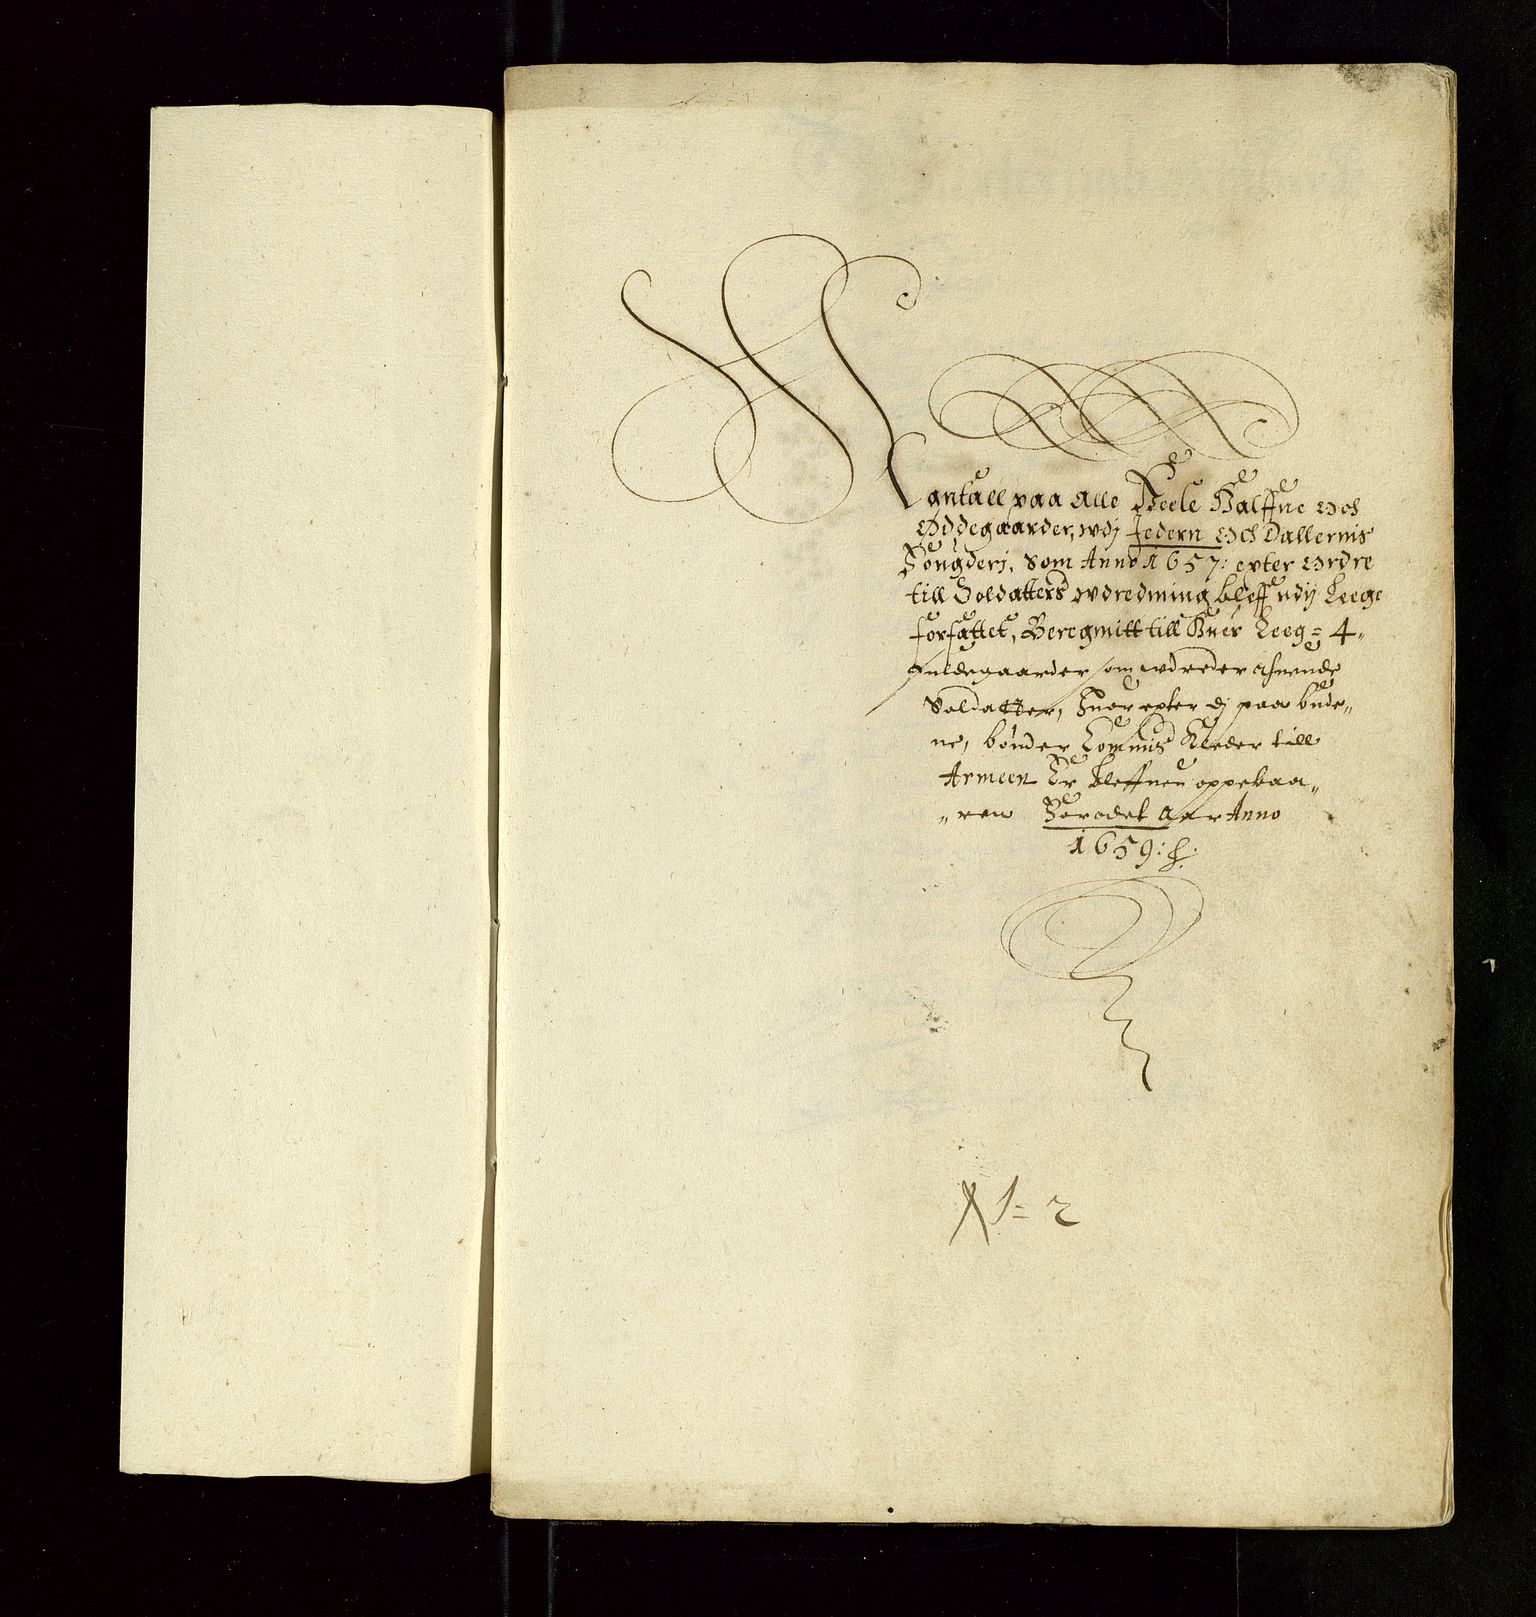 Mantall paa Alle Heele Halffue och
Øddegaarder, wdj Jedern och Dallernis
Fougderj, Som Anno 1657: epter ordre
till Soldatters wdredning bleff udij Leege
forfattet, Beregnitt till Huer Leeg = 4„
fuldegaarder som wdreder
Soldatter, Huor epter dj paa bude„
ne, bønder Commis Kleder till
Armeen Er bleffuen oppebaa„
„ren Forodet Aar Anno
1659:
N = 2